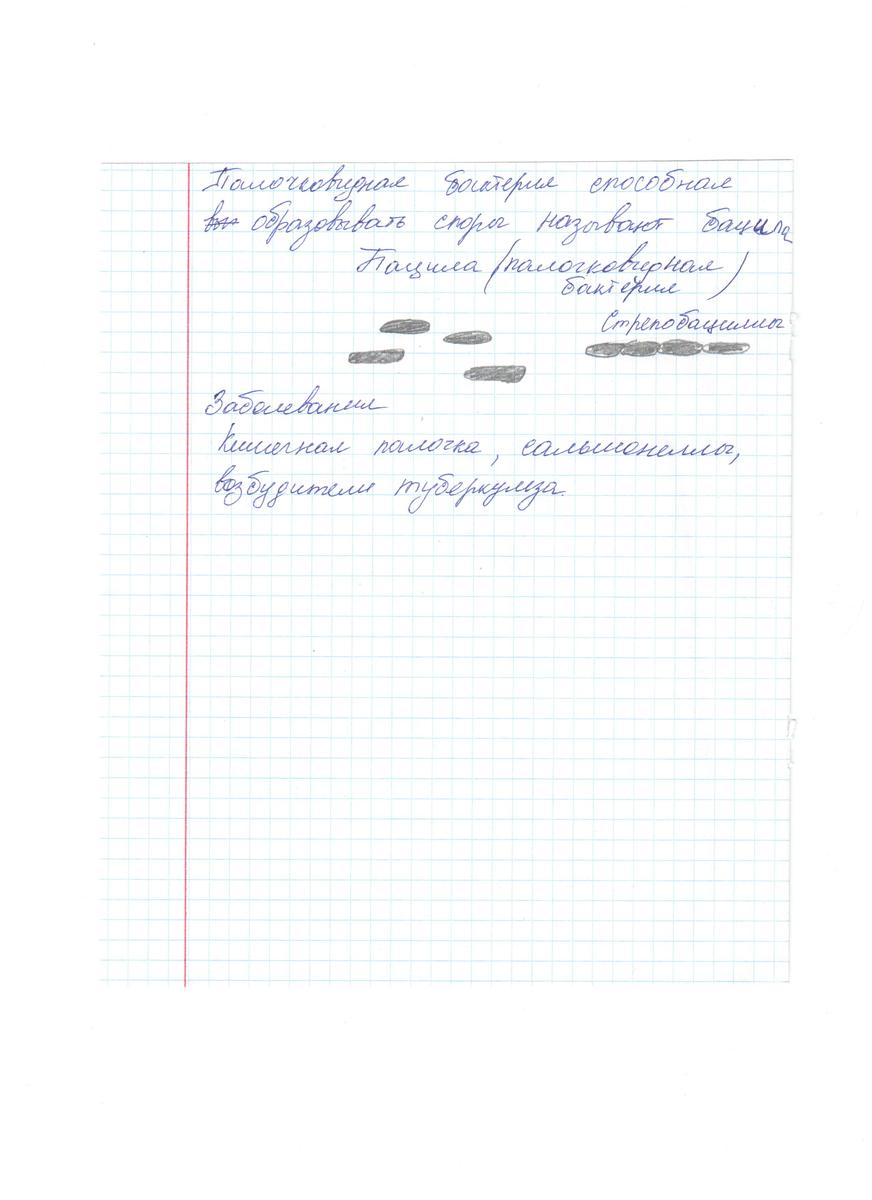 Палочковидная бактерия способная
вы образовывать споры называют бацила
Пацила (палочковидная
бактерия)
Стрепобациллы
Заболевания
Кишечная палочка, сальмонеллы,
возбудители туберкулёза.